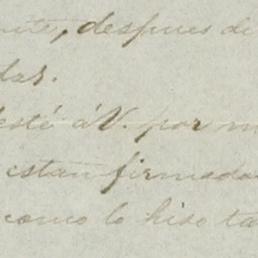 después de
das.
esté á V. por m
estan firmada
como lo hiso ta